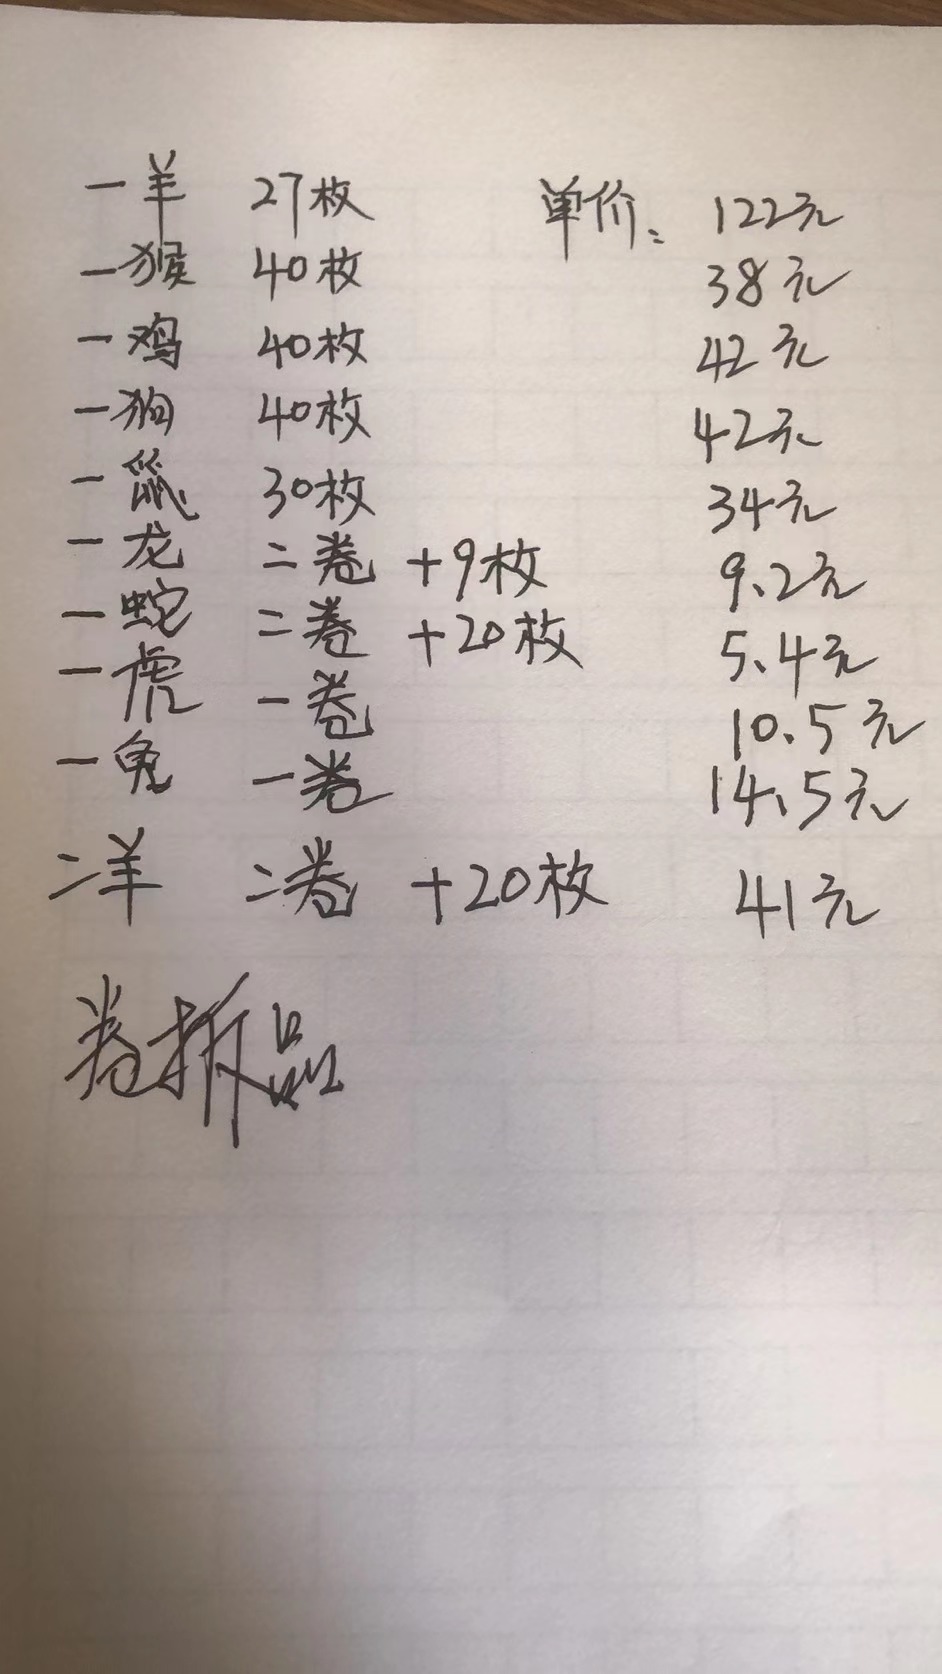 一羊 27枚 单价: 122元
一猴 40枚 38元
一鸡 40枚 42元
一狗 40枚 42元
一鼠 30枚 34元
一龙 二卷 +9枚 9.2元
一蛇 二卷 +20枚 5.4元
一虎 一卷 10.5元
一兔 一卷 14.5元
二羊 二卷 +20枚 41元
卷拆品